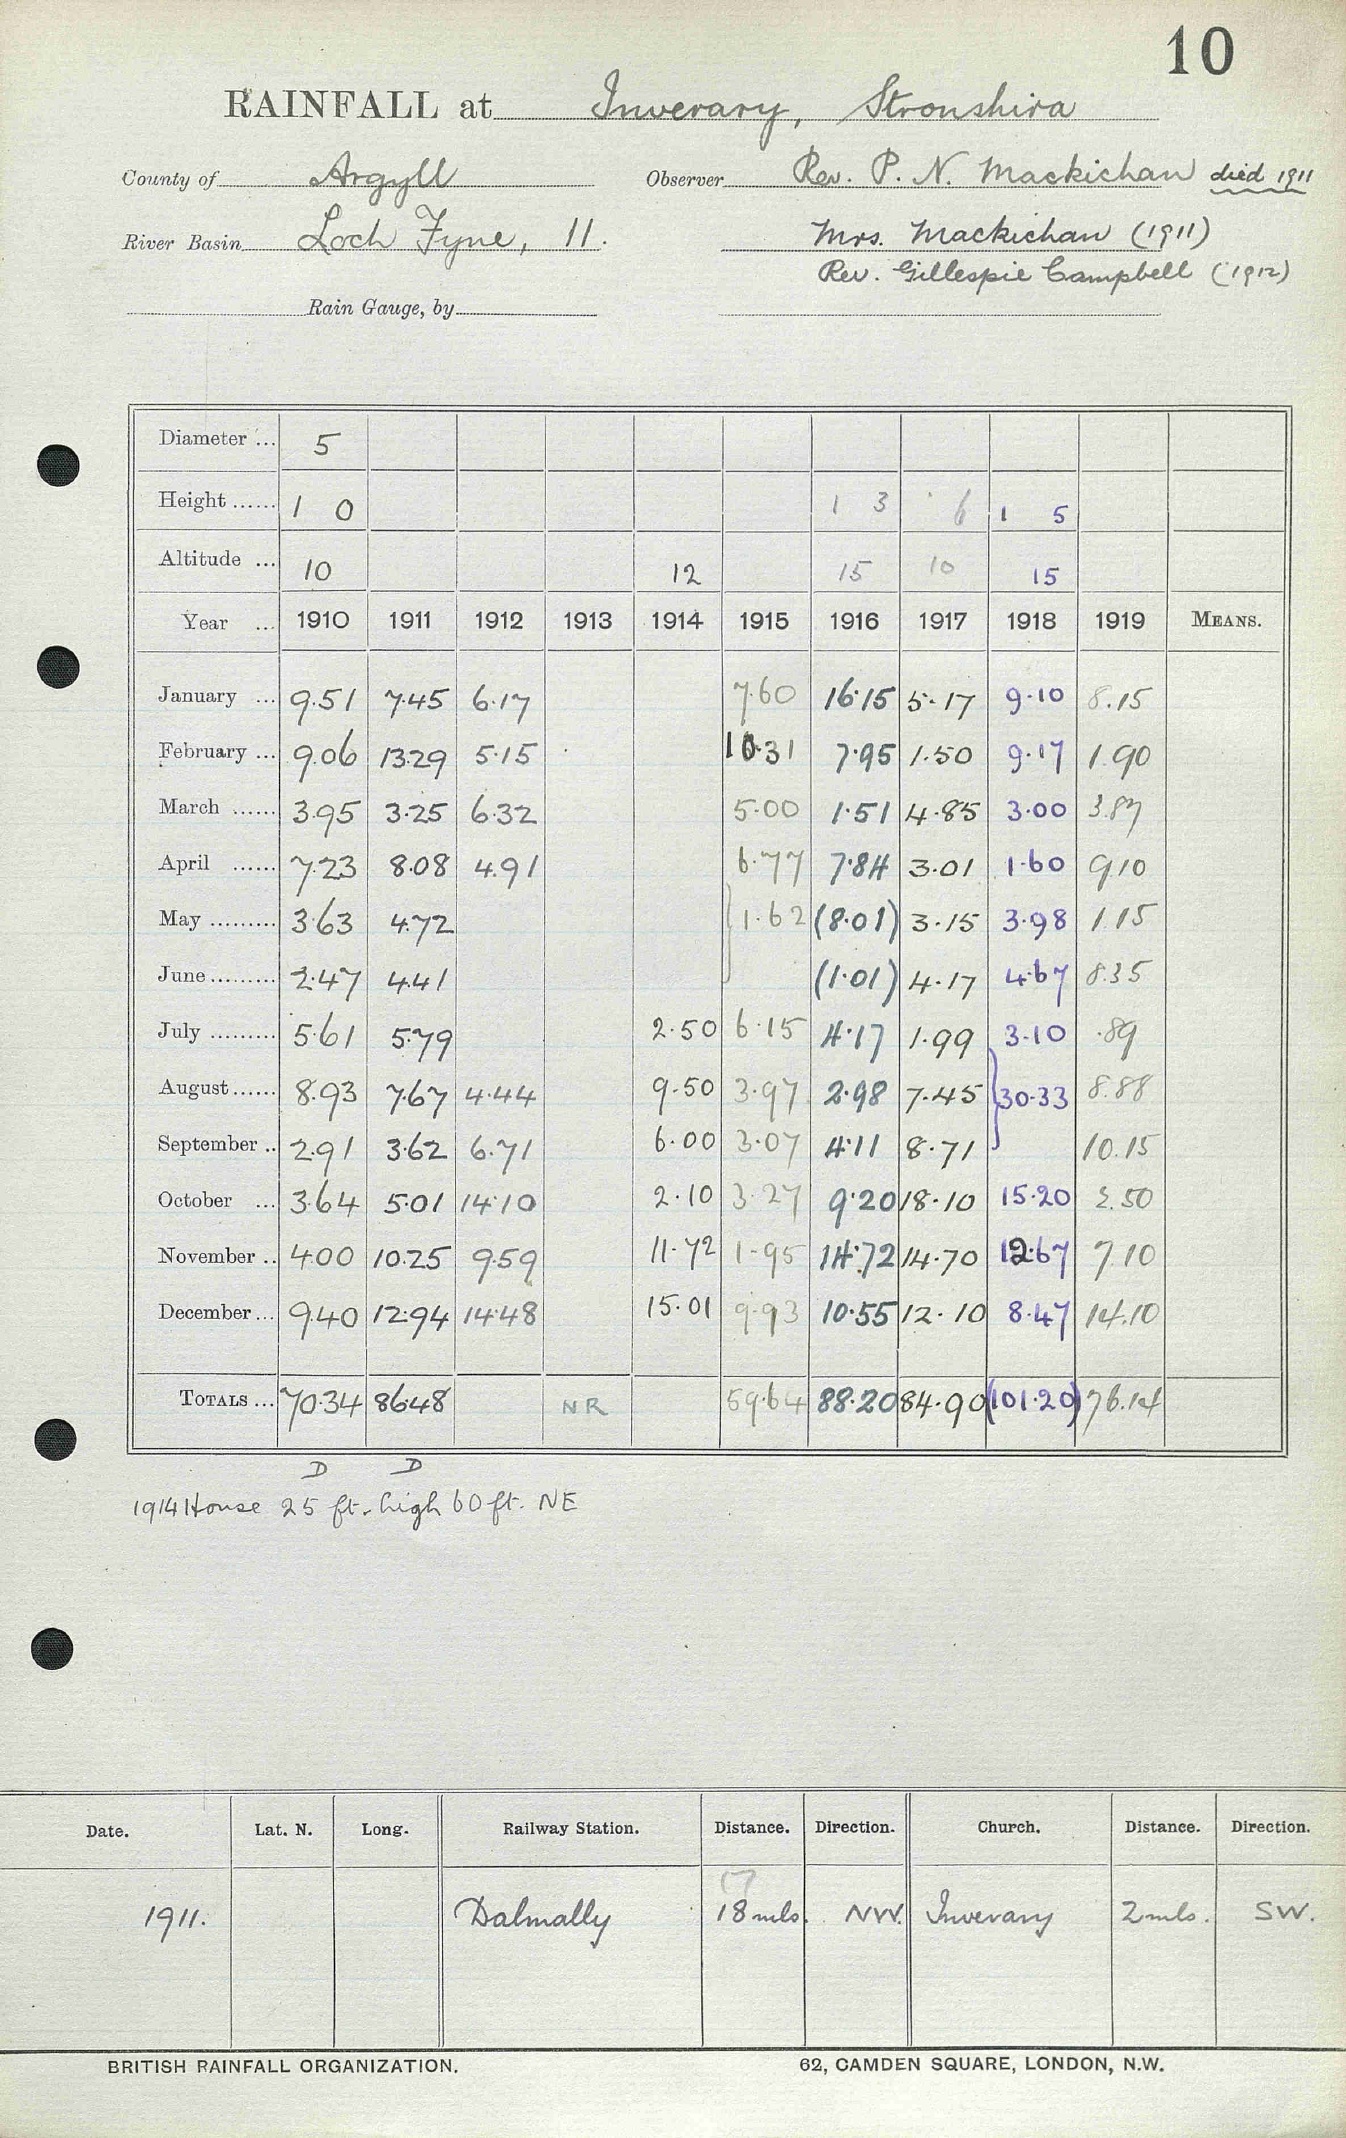 10
RAINFALL at Inverary, Stronshira
County of Argyll Observer Rev. P. N. Mackichan died 1911
River Basin Loch Fyne, 11. Mrs. Mackichan (1911)
Rev. Gillespie Campbell (1912)
Rain Gauge, by
Diameter ... 5
Height ...... 1 0 1 3 6 1 5
Altitude ... 10 12 15 10 15
Year ... 1910 1911 1912 1913 1914 1915 1916 1917 1918 1919 MEANS.
January ... 9.51 7.45 6.17 7.60 16.15 5.17 9.10 8.15
February ... 9.06 13.29 5.15 10.31 7.95 1.50 9.17 1.90
March ...... 3.95 3.25 6.32 5.00 1.51 4.85 3.00 3.87
April ...... 7.23 8.08 4.91 6.77 7.84 3.01 1.60 9.10
May ......... 3.63 4.72 1.62 (8.01) 3.15 3.98 1.15
June ......... 2.47 4.41 (1.01) 4.17 4.67 8.35
July ......... 5.61 5.79 2.50 6.15 4.17 1.99 3.10 .89
August ...... 8.93 7.67 4.44 9.50 3.97 2.98 7.45 30.33 8.88
September .. 2.91 3.62 6.71 6.00 3.07 4.11 8.71 10.15
October ... 3.64 5.01 14.10 2.10 3.27 9.20 18.10 15.20 2.50
November .. 4.00 10.25 9.59 11.72 1.95 14.72 14.70 12.67 7.10
December ... 9.40 12.94 14.48 15.01 9.93 10.55 12.10 8.47 14.10
TOTALS ... 70.34 86.48 NR 59.64 88.20 84.90 (101.20) 76.14
D D
1914 House 25 ft. high 60 ft. NE
Date. Lat. N. Long. Railway Station. Distance. Direction. Church. Distance. Direction.
17
1911. Dalmally 18 mls. NW. Inverary 2 mls. SW.
BRITISH RAINFALL ORGANIZATION. 62, CAMDEN SQUARE, LONDON, N.W.